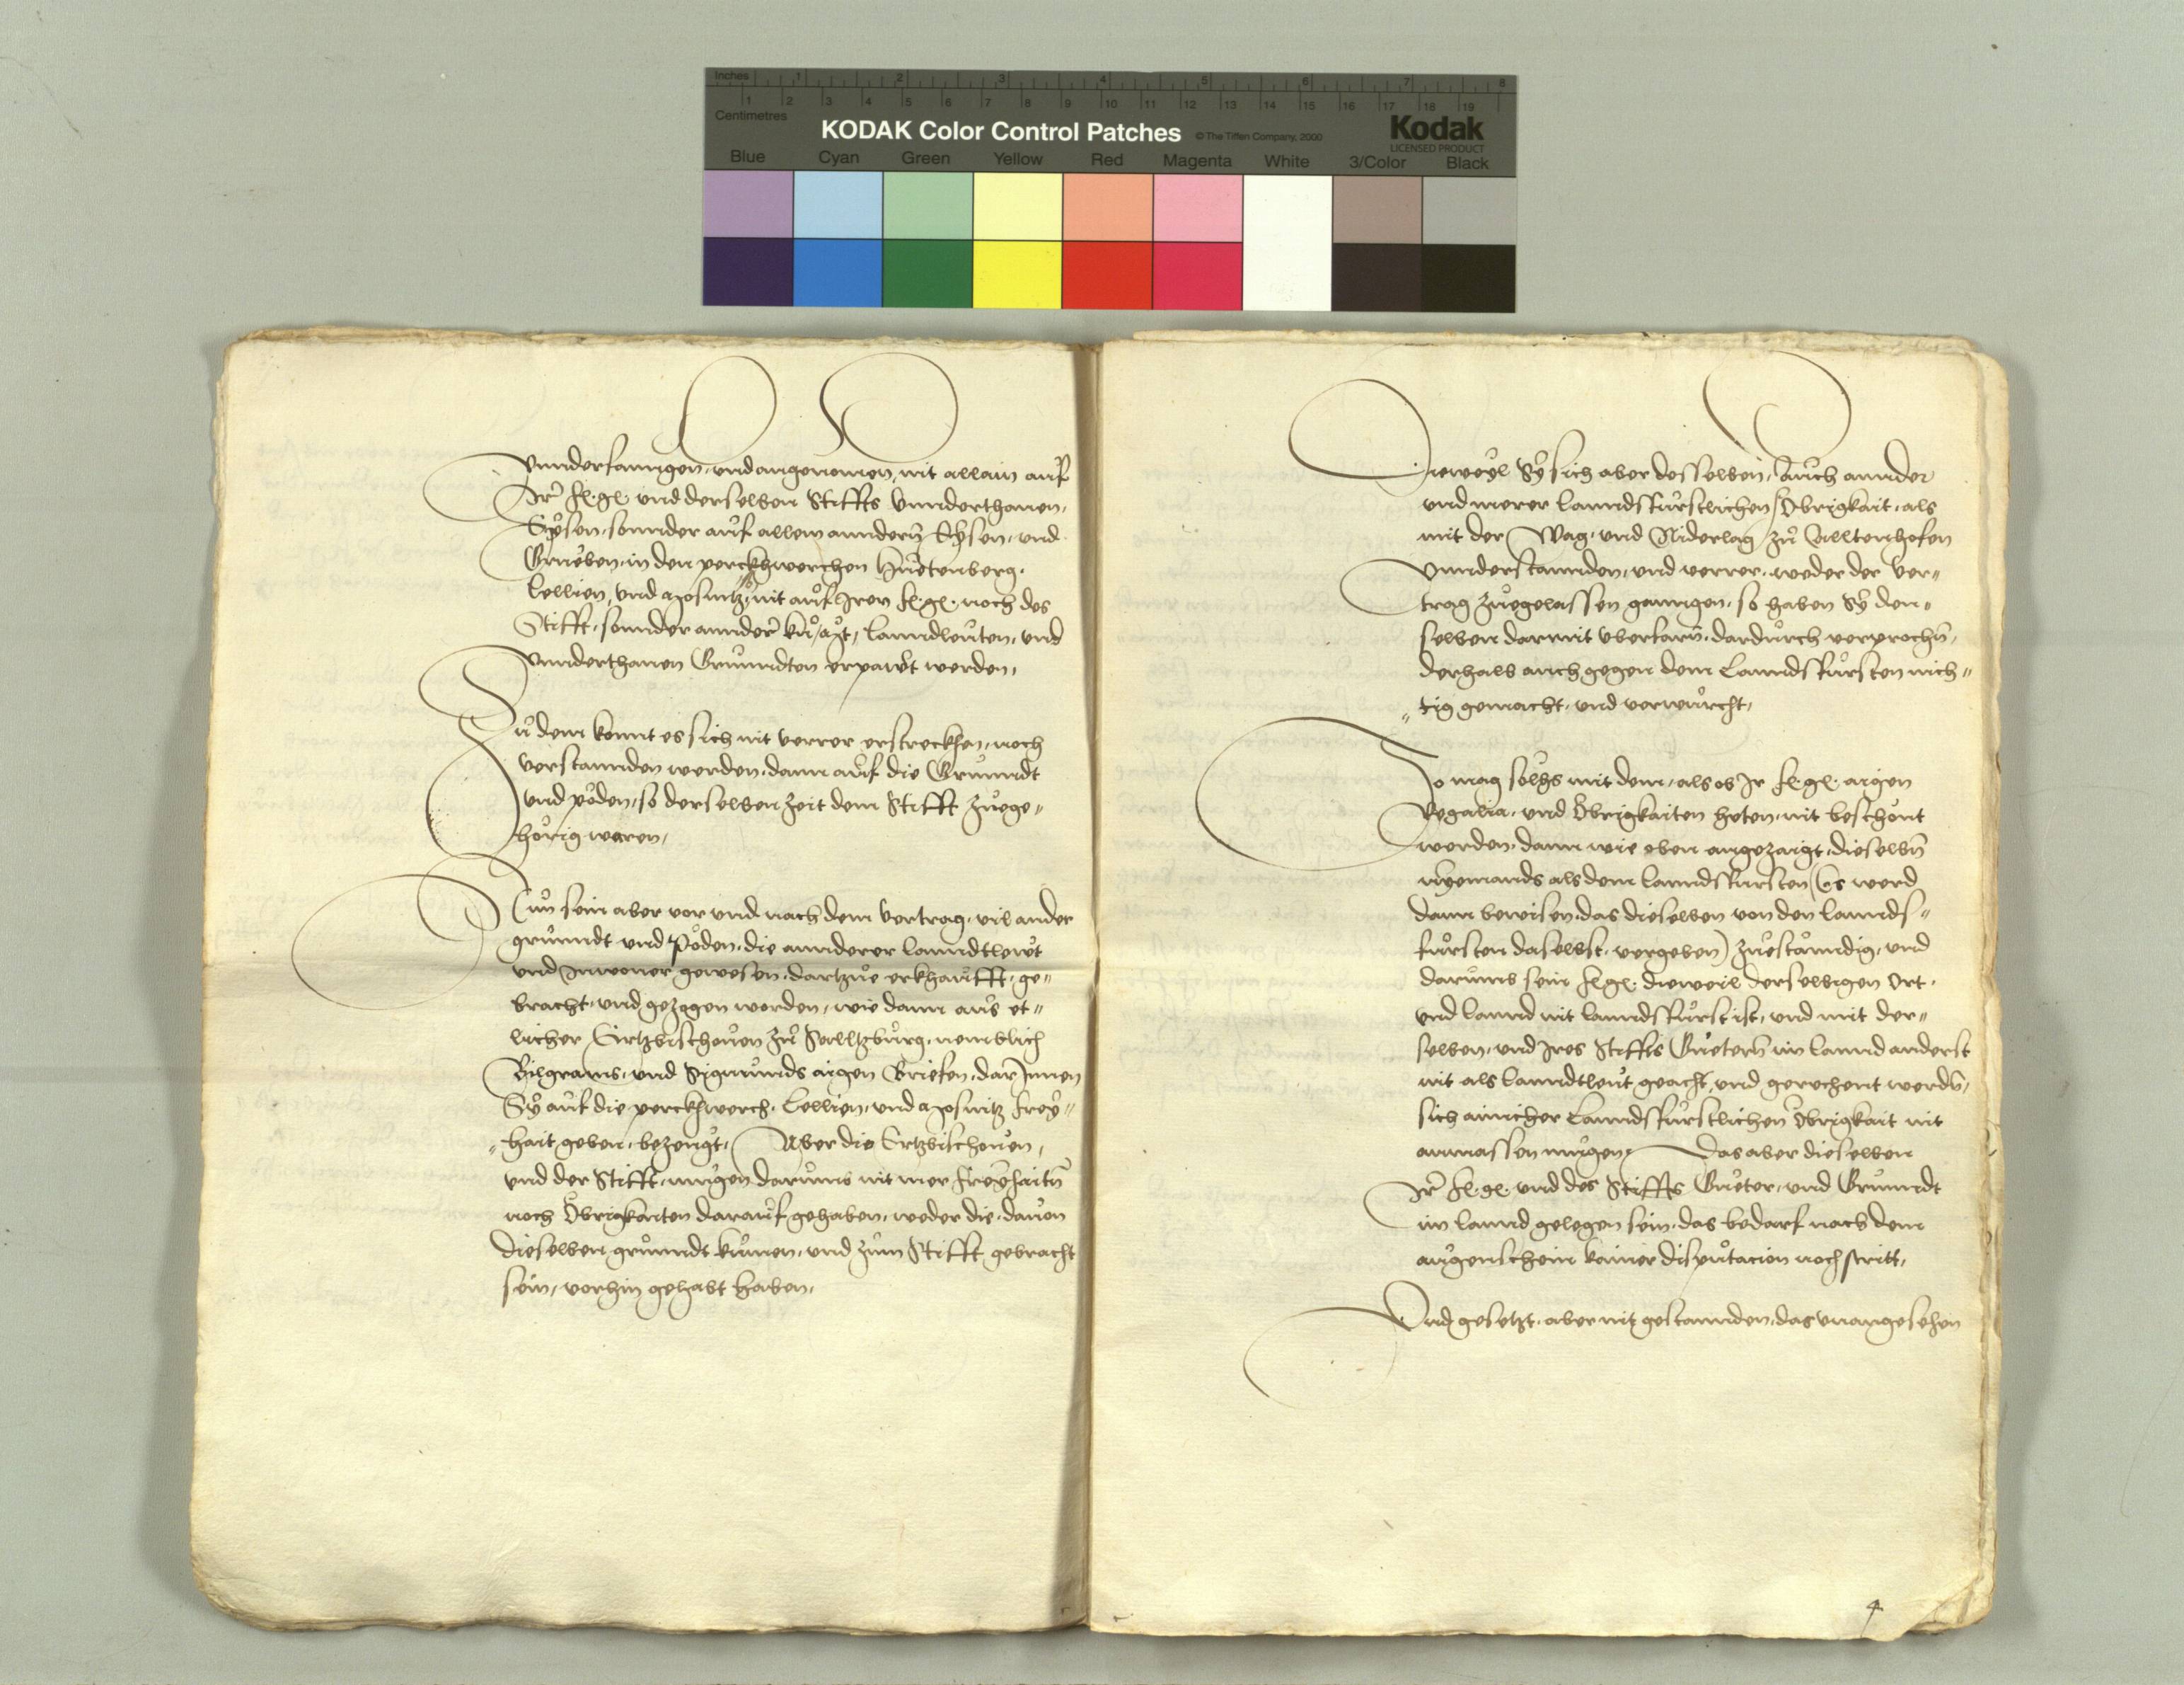 Inches 1 2 3 4 5 6 7 8
Centimetres 1 2 3 4 5 6 7 8 9 10 11 12 13 14 15 16 17 18 19
KODAK Color Control Patches © The Tiffen Company, 2000 Kodak
LICENSED PRODUCT
Blue Cyan Green Yellow Red Magenta White 3/Color Black
vnnderfanngen, vnd angenomen, nit allain auf
Irer fl. gl. vnd derselben Stiffts vnnderthanen,
Eysen, sonnder auf allem anndern Eysen, vnd
Grueben, in den perckhwerchen Huetenberg,
Lellien, vnd Mosnitz, nit auf Iren fl. gl. noch des
Stifft, sonnder annder lanndleuten, vnd
vnnderthanen Grunndten erpawt werden,
Zu dem konnt es sich nit verrer erstreckhen, noch
verstannden werden, dann auf die Grunndt
vnd pöden, so derselben zeit dem Stifft zuege-
hörig waren,
Nun sein aber vor vnd nach dem vertrag, vil ander
grunndt vnd Pöden, die annderer lanndtlewt
vnd Inwoner gewesen, dartzue erkhaufft, ge-
bracht, vnd gezogen worden, wie dann aus et-
licher Ertzbischouen zu Salltzburg, nemblich
Bilgrams, vnd Sigmunds aigen Briefen, dar Innen
Sy auf die perckhwerch, Lellien, vnd Mosnitz frey-
hait geben, bezeugt, Aber die Ertzbischouen,
und der Stifft, mugen darumb nit mer freyhaitn
noch Obrigkaiten darauf gehaben, weder die, dauon
dieselben grunndt kumen, vnd zum Stifft gebracht
sein, vorhin gehabt haben,
Dieweyl Sy sich aber desselben, auch annder
vnd merer lanndsfurstlichen Obrigkait, als
mit der Wag, vnd Niderlag zu Alltenhofen
vnnderstannden, vnd verrer, weder der ver-
trag zuegelassen ganngen, so haben Sy den-
selben darmit vberfarn, dardurch verprochn,
derhalb auch gegen dem Lanndsfursten nich-
tig gemacht, vnd verwurcht,
So mag solhs mit dem, als ob Ir fl. gl. aigen
Regalia, vnd Obrigkaiten heten, nit beschönt
werden, dann wie oben angezaigt, dieselbn
nyemands als dem lanndsfursten (Es werd
dann bewisen, das dieselben von den lannds-
fursten daselbst, vergeben) zueständig, vnd
darumb sein fl. gl. dieweil derselbigen Ort,
vnd lannd nit lanndsfurst ist, vnd mit der-
selben, vnd Ires Stiffts Guetern im lannd anderst
nit als lanndtleut geacht, vnd gerechent werdn,
sich ainicher Lanndsfurstlichen Obrigkait nit
anmassen mugen, Das aber dieselben
Ir fl. gl. vnd des Stiffts Gueter, vnd Grunndt
im lannd gelegen sein, das bedarf nach dem
augenschein kainer disputacion noch stritt,
Vnd gesetzt, aber nit gestannden, das vnangesehen
4